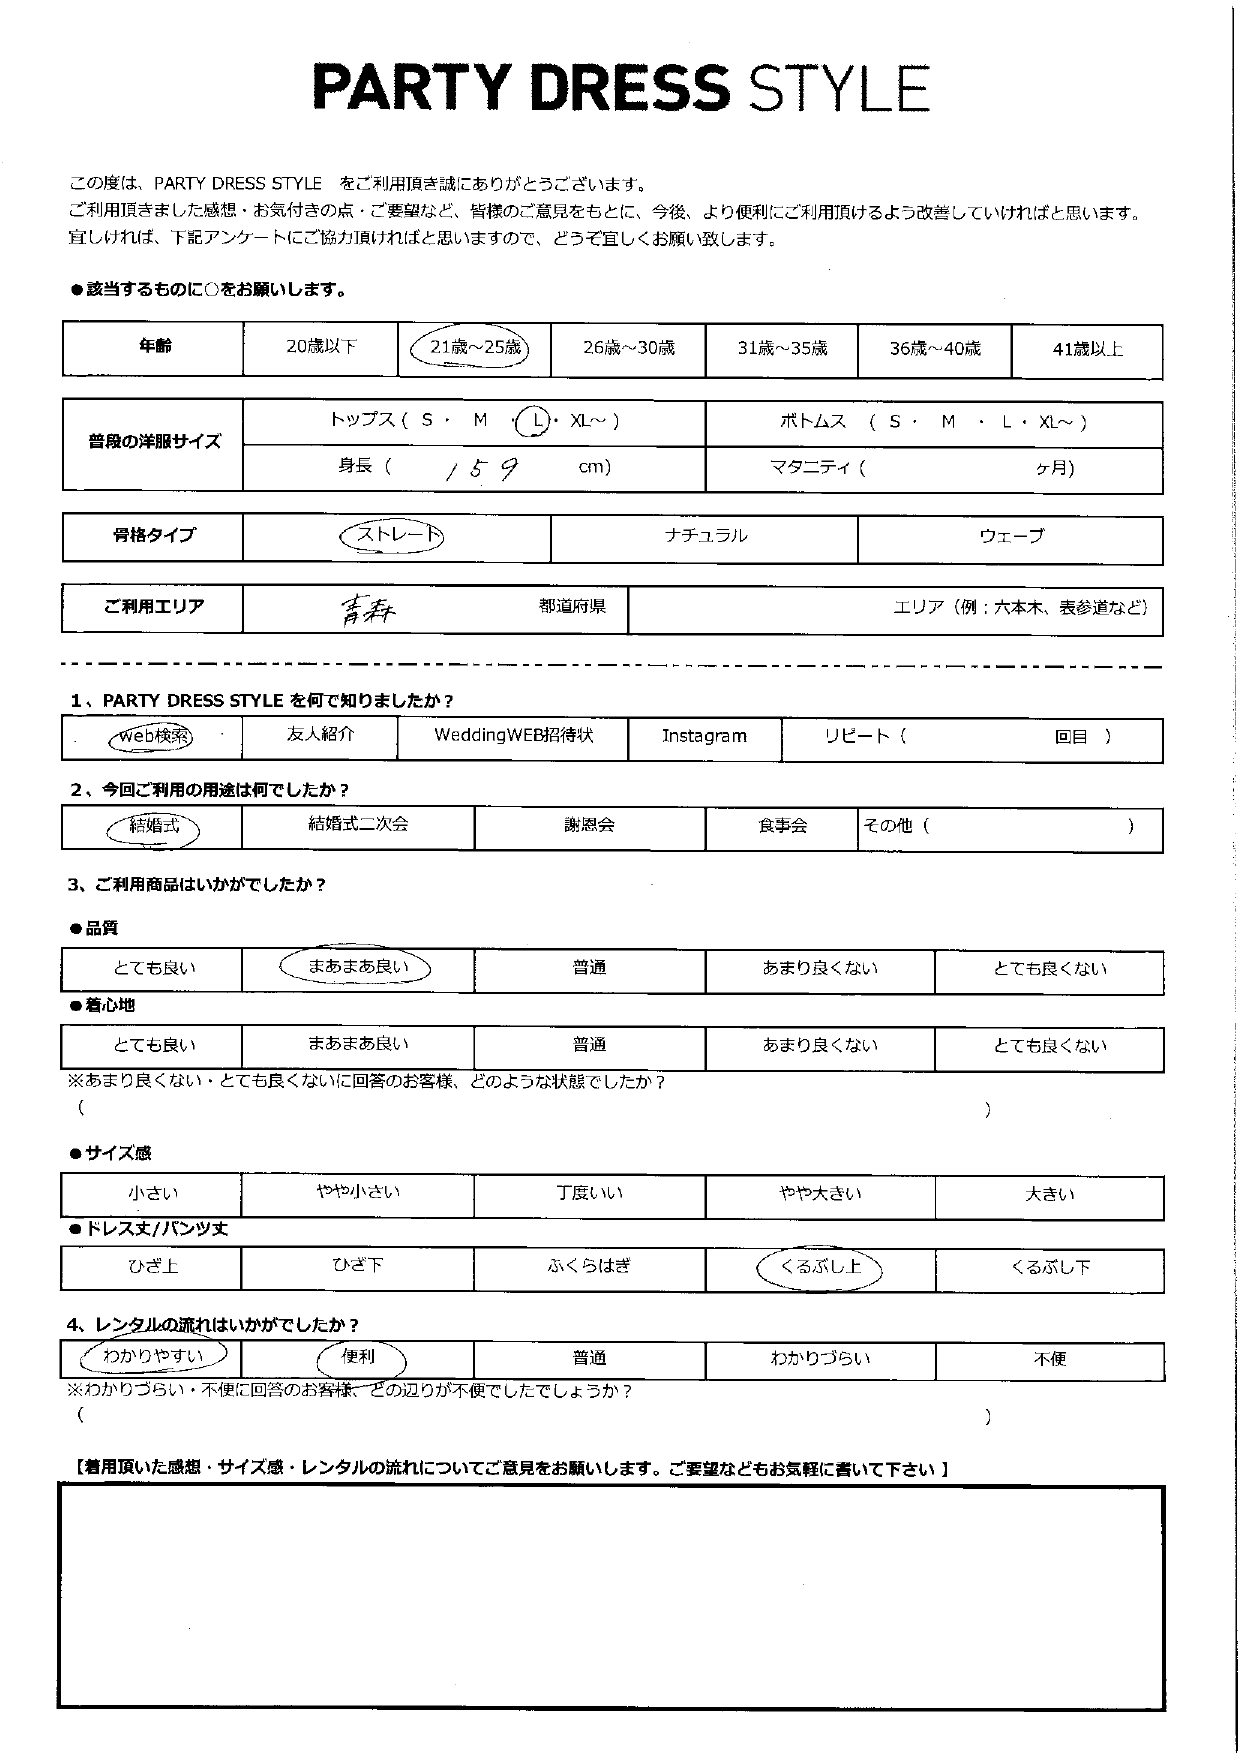 PARTY DRESS STYLE
この度は、PARTY DRESS STYLE をご利用頂き誠にありがとうございます。
ご利用頂きました感想・お気付きの点・ご要望など、皆様のご意見をもとに、今後、より便利にご利用頂けるよう改善していければと思います。
宜しければ、下記アンケートにご協力頂ければと思いますので、どうぞ宜しくお願い致します。
●該当するものに○をお願いします。
年齢 20歳以下 21歳～25歳 26歳～30歳 31歳～35歳 36歳～40歳 41歳以上
普段の洋服サイズ トップス ( S ・ M ・ L ・ XL～ ) ボトムス ( S ・ M ・ L ・ XL～ )
身長 ( 159 cm) マタニティ ( ヶ月)
骨格タイプ ストレート ナチュラル ウェーブ
ご利用エリア 青森 都道府県 エリア（例：六本木、表参道など）
1、PARTY DRESS STYLE を何で知りましたか？
Web検索 友人紹介 WeddingWEB招待状 Instagram リピート ( 回目 )
2、今回ご利用の用途は何でしたか？
結婚式 結婚式二次会 謝恩会 食事会 その他 ( )
3、ご利用商品はいかがでしたか？
●品質
とても良い まあまあ良い 普通 あまり良くない とても良くない
●着心地
とても良い まあまあ良い 普通 あまり良くない とても良くない
※あまり良くない・とても良くないに回答のお客様、どのような状態でしたか？
( )
●サイズ感
小さい やや小さい 丁度いい やや大きい 大きい
●ドレス丈/パンツ丈
ひざ上 ひざ下 ふくらはぎ くるぶし上 くるぶし下
4、レンタルの流れはいかがでしたか？
わかりやすい 便利 普通 わかりづらい 不便
※わかりづらい・不便に回答のお客様、どの辺りが不便でしたでしょうか？
( )
【着用頂いた感想・サイズ感・レンタルの流れについてご意見をお願いします。ご要望などもお気軽に書いて下さい 】